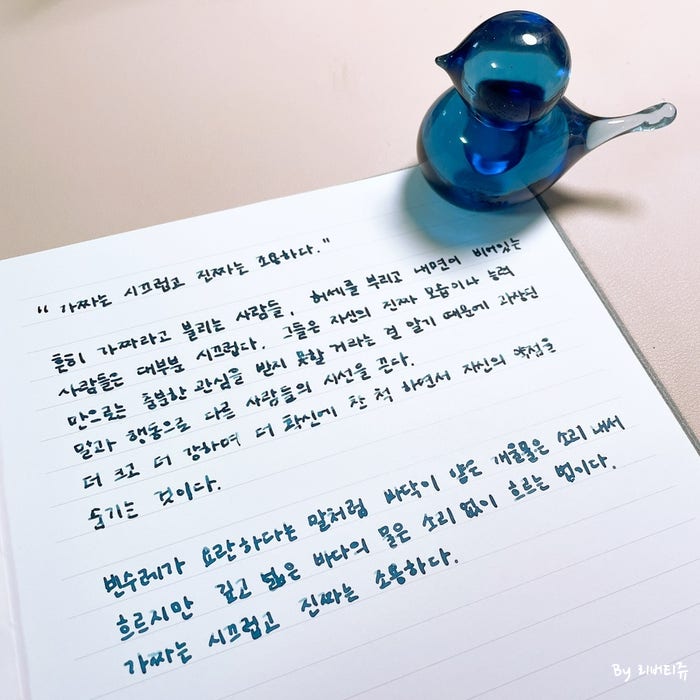 “ 가짜는 시끄럽고 진짜는 조용하다.”
흔히 가짜라고 불리는 사람들, 허세를 부리고 내면이 비어있는
사람들은 대부분 시끄럽다. 그들은 자신의 진짜 모습이나 능력
만으로는 충분한 관심을 받지 못할 거라는 걸 알기 때문에 과장된
말과 행동으로 다른 사람들의 시선을 끈다.
더 크고 더 강하며 더 확신에 찬 척 하면서 자신의 약점을
숨기는 것이다.
빈수레가 요란하다는 말처럼 바닥이 얕은 개울물은 소리 내서
흐르지만 깊고 넓은 바다의 물은 소리 없이 흐르는 법이다.
가짜는 시끄럽고 진짜는 조용하다.
By 리버티쥬